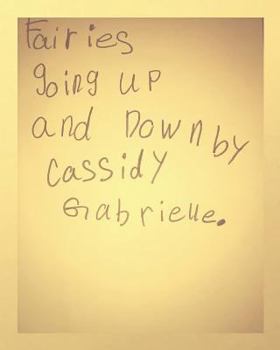 Fairies
going up
and Down by
Cassidy
Gabrielle.